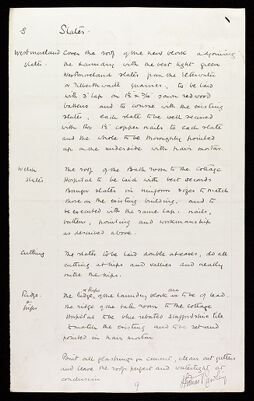 8 Slater.
Westmorland Cover the roof of the new block adjoining
slates. the Laundry with the best light green
Westmorland slates from the
or Tilberthwaite quarries, to be laid
with 3" lap on 1½ x ¾ sawn redwood
battens and to course with the existing
slates, each slate to be well secured
with two 1½ copper nails to each slate
and the whole to be thoroughly pointed
up on the underside with hair mortar
Welsh The roof of the Bath room to the Cottage
slates Hospital to be laid with best seconds
Bangor slates in uniform sizes to match
those on the existing building, and to
be executed with the same lap, nails,
battens, pointing and workmanship
as described above.
Cutting The slates to be laid double at eaves, do all
cutting at hips and valleys and neatly
mitre the hips.
& Hips are
Ridge. The Ridge of the Laundry block is to be of lead.
Hips the ridge of the Bath room to the Cottage
Hospital to be blue rebated Staffordshire tile
to match the existing and to be set and
pointed in hair mortar
Point all flashings in cement, clean out gutters
and leave the roofs perfect and watertight at
conclusion
9